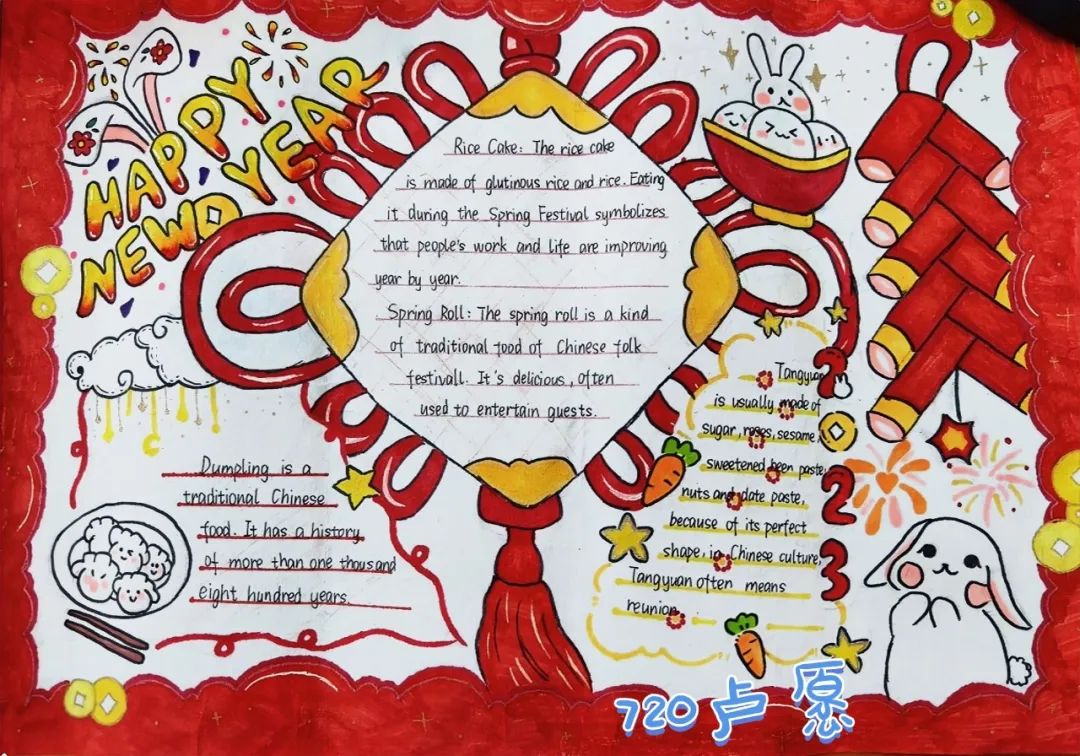 HAPPY
NEW YEAR
Rice Cake: The rice cake
is made of glutinous rice and rice. Eating
it during the Spring Festival symbolizes
that people's work and life are improving
year by year.
Spring Roll: The spring roll is a kind
of traditional food of Chinese folk
festivall. It's delicious, often
used to entertain guests.
Dumpling is a
traditional Chinese
food. It has a history
of more than one thousand
eight hundred years.
Tangyuan
is usually made of
sugar, roses, sesame,
sweetened been paste,
nuts and date paste,
because of its perfect
shape, in Chinese culture,
Tangyuan often means
reunion.
2023
720 卢愿